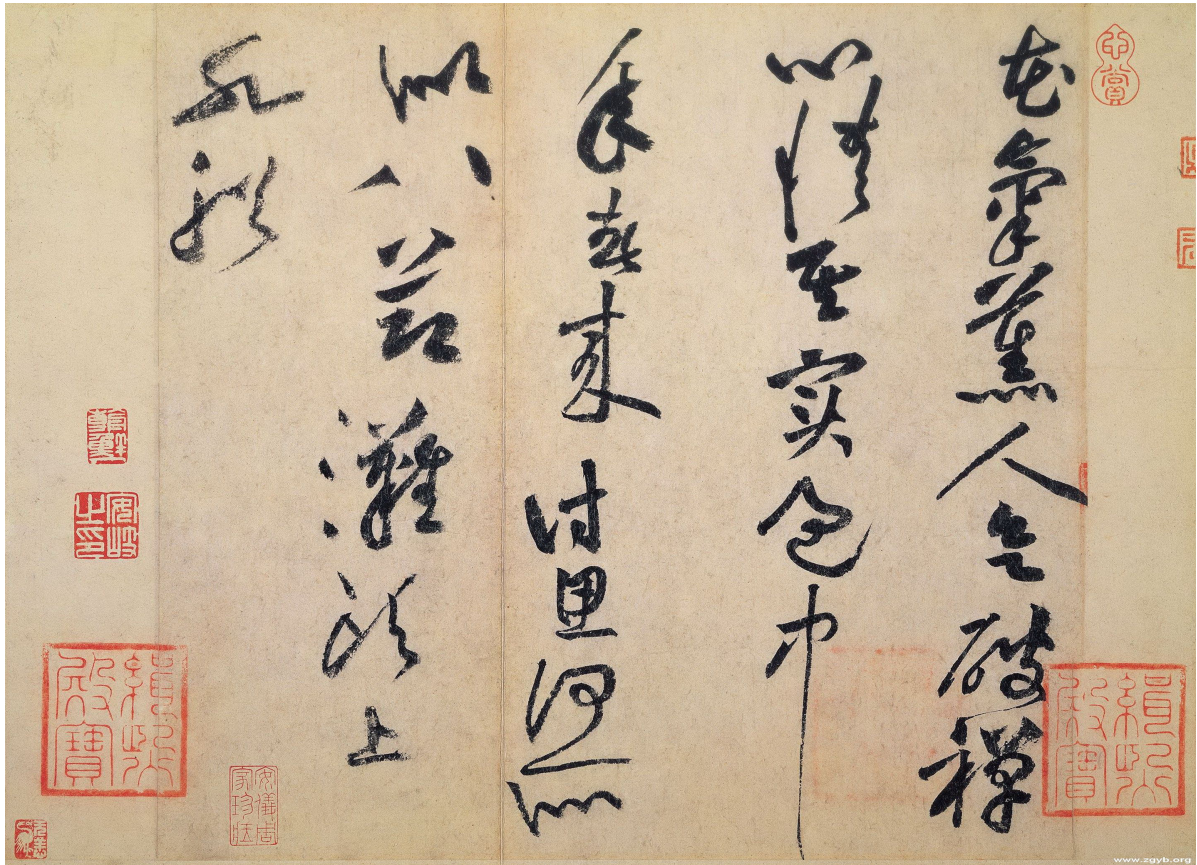 心賞
花氣薰人欲破禪
心情其實過中
年春來詩思何所
似八節灘頭上
水船
緝熙殿寶
緝熙殿寶
安儀周家珍藏
安岐之印
www.zgyb.org